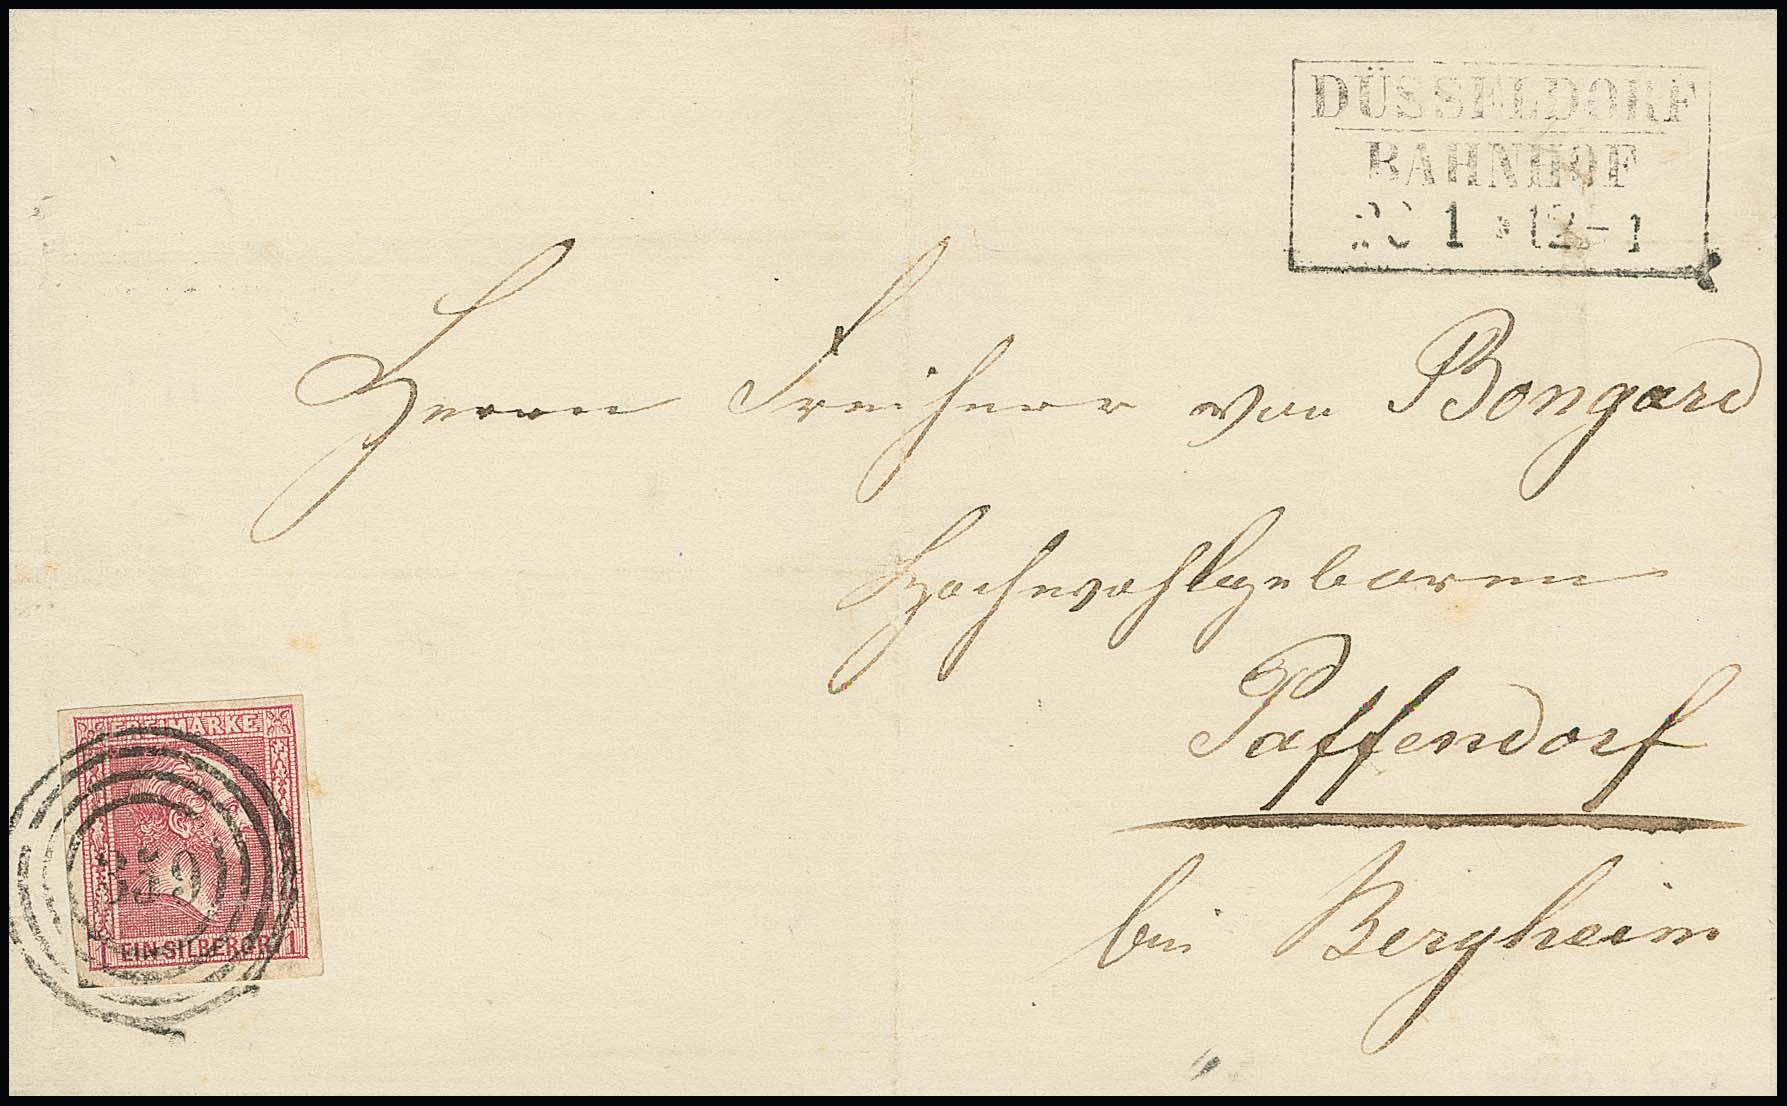 DÜSSELDORF
BAHNHOF
1 12-1
Herrn Freiherr von Bongard
Hochwohlgeboren
Paffendorf
bei Bergheim
FREIMARKE
359
1 EIN SILBERGR. 1